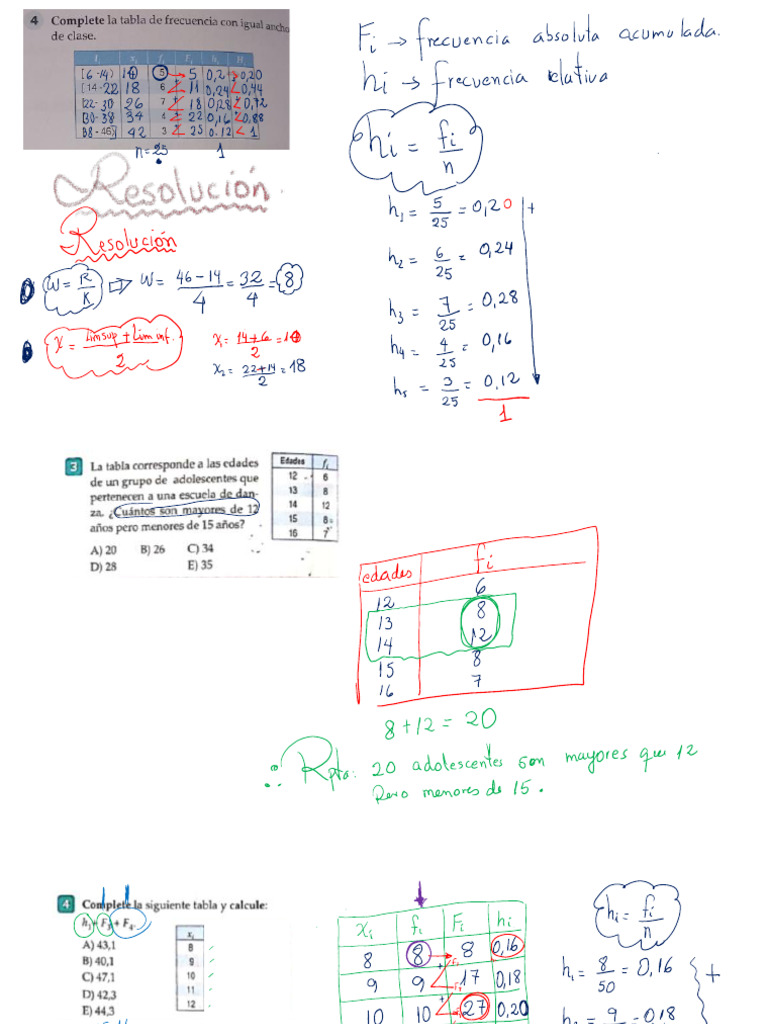 4 Complete la tabla de frecuencia con igual ancho
de clase.
Ii xi fi Fi hi Hi
[6-14) 10 5 5 0,2 0,20
[14-22 18 6 11 0,24 0,44
[22-30 26 7 18 0,28 0,72
[30-38 34 4 22 0,16 0,88
[38-46] 42 3 25 0.12 1
n=25 1
Fi → frecuencia absoluta acumulada.
hi → frecuencia relativa
hi = fi/n
h1 = 5/25 = 0,20 +
h2 = 6/25 = 0,24
h3 = 7/25 = 0,28
h4 = 4/25 = 0,16
h5 = 3/25 = 0,12
1
Resolución
Resolución
W = R/K ⇒ W = 46-14/4 = 32/4 = 8
x = Lim sup + Lim inf./2
x1 = 14+6/2 = 10
x2 = 22+14/2 = 18
3 La tabla corresponde a las edades
de un grupo de adolescentes que
pertenecen a una escuela de dan-
za. ¿Cuántos son mayores de 12
años pero menores de 15 años?
A) 20 B) 26 C) 34
D) 28 E) 35
Edades fi
12 6
13 8
14 12
15 8
16 7
edades fi
12 6
13 8
14 12
15 8
16 7
8+12 = 20
∴ Rpta: 20 adolescentes son mayores que 12
Pero menores de 15.
4 Complete la siguiente tabla y calcule:
h1 + F3 + F4.
A) 43,1
B) 40,1
C) 47,1
D) 42,3
E) 44,3
xi
8
9
10
11
12
xi fi Fi hi
8 8 8 0,16
9 9 17 0,18
10 10 27 0,20
hi = fi/n
h1 = 8/50 = 0,16 +
h2 = 9 = 0,18